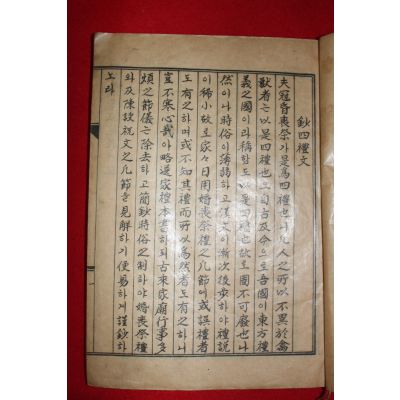 鈔四禮文
夫冠昏喪祭가是爲四禮也니凡人之所以不異於禽
獸者는以是四禮也오自古及今으로吾國이東方禮
義之國이라稱함도以是四禮也故로固不可廢也나
然이나時俗이薄弱하고天이漸次後步하야禮說
이稀小故로家々日用婚喪祭禮之凡節에或誤禮者
도有之하며或不知其禮而所以爲然者도有之하니
豈不寒心哉아略選家禮本書하되古來家廟行事多
煩之節儀는除去하고簡鈔時俗之制하야婚喪祭禮
와及陳設祝文之凡節을見解하기便易하게謹鈔하
노라